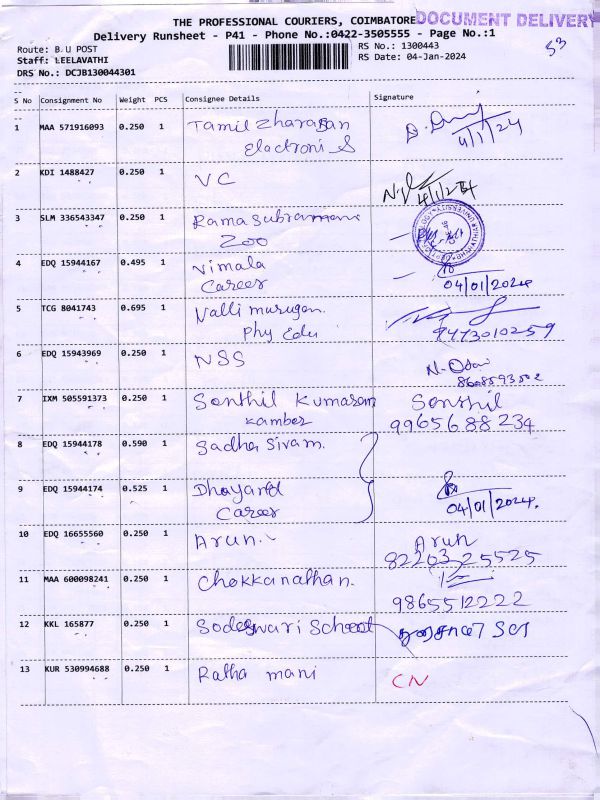 THE PROFESSIONAL COURIERS, COIMBATORE DOCUMENT DELIVERY
Delivery Runsheet - P41 - Phone No.:0422-3505555 - Page No.:1
Route: B.U POST
Staff: LEELAVATHI
DRS No.: DCJB130044301
RS No.: 1300443
RS Date: 04-Jan-2024
53
S No Consignment No Weight PCS Consignee Details Signature
1 MAA 571916093 0.250 1 Tamil Zharasan
Electroni S
4/1/24
2 KDI 1488427 0.250 1 VC
4/1/24
3 SLM 336543347 0.250 1 Rama Subramani
Zoo
4 EDQ 15944167 0.495 1 Vimala
Career 04/01/2024
5 TCG 8041743 0.695 1 Valli murugan.
Phy Edu 9443010259
6 EDQ 15943969 0.250 1 NSS
7 IXM 505591373 0.250 1 Senthil Kumaran Senthil
Kamber 9965688234
8 EDQ 15944178 0.590 1 Sadha Sivam.
9 EDQ 15944174 0.525 1 Dhayanand
Career 04/01/2024.
10 EDQ 16655560 0.250 1 Arun. Arun
8220325525
11 MAA 600098241 0.250 1 Chokkanathan.
9865512222
12 KKL 165877 0.250 1
13 KUR 530994688 0.250 1 Ratha mani CN